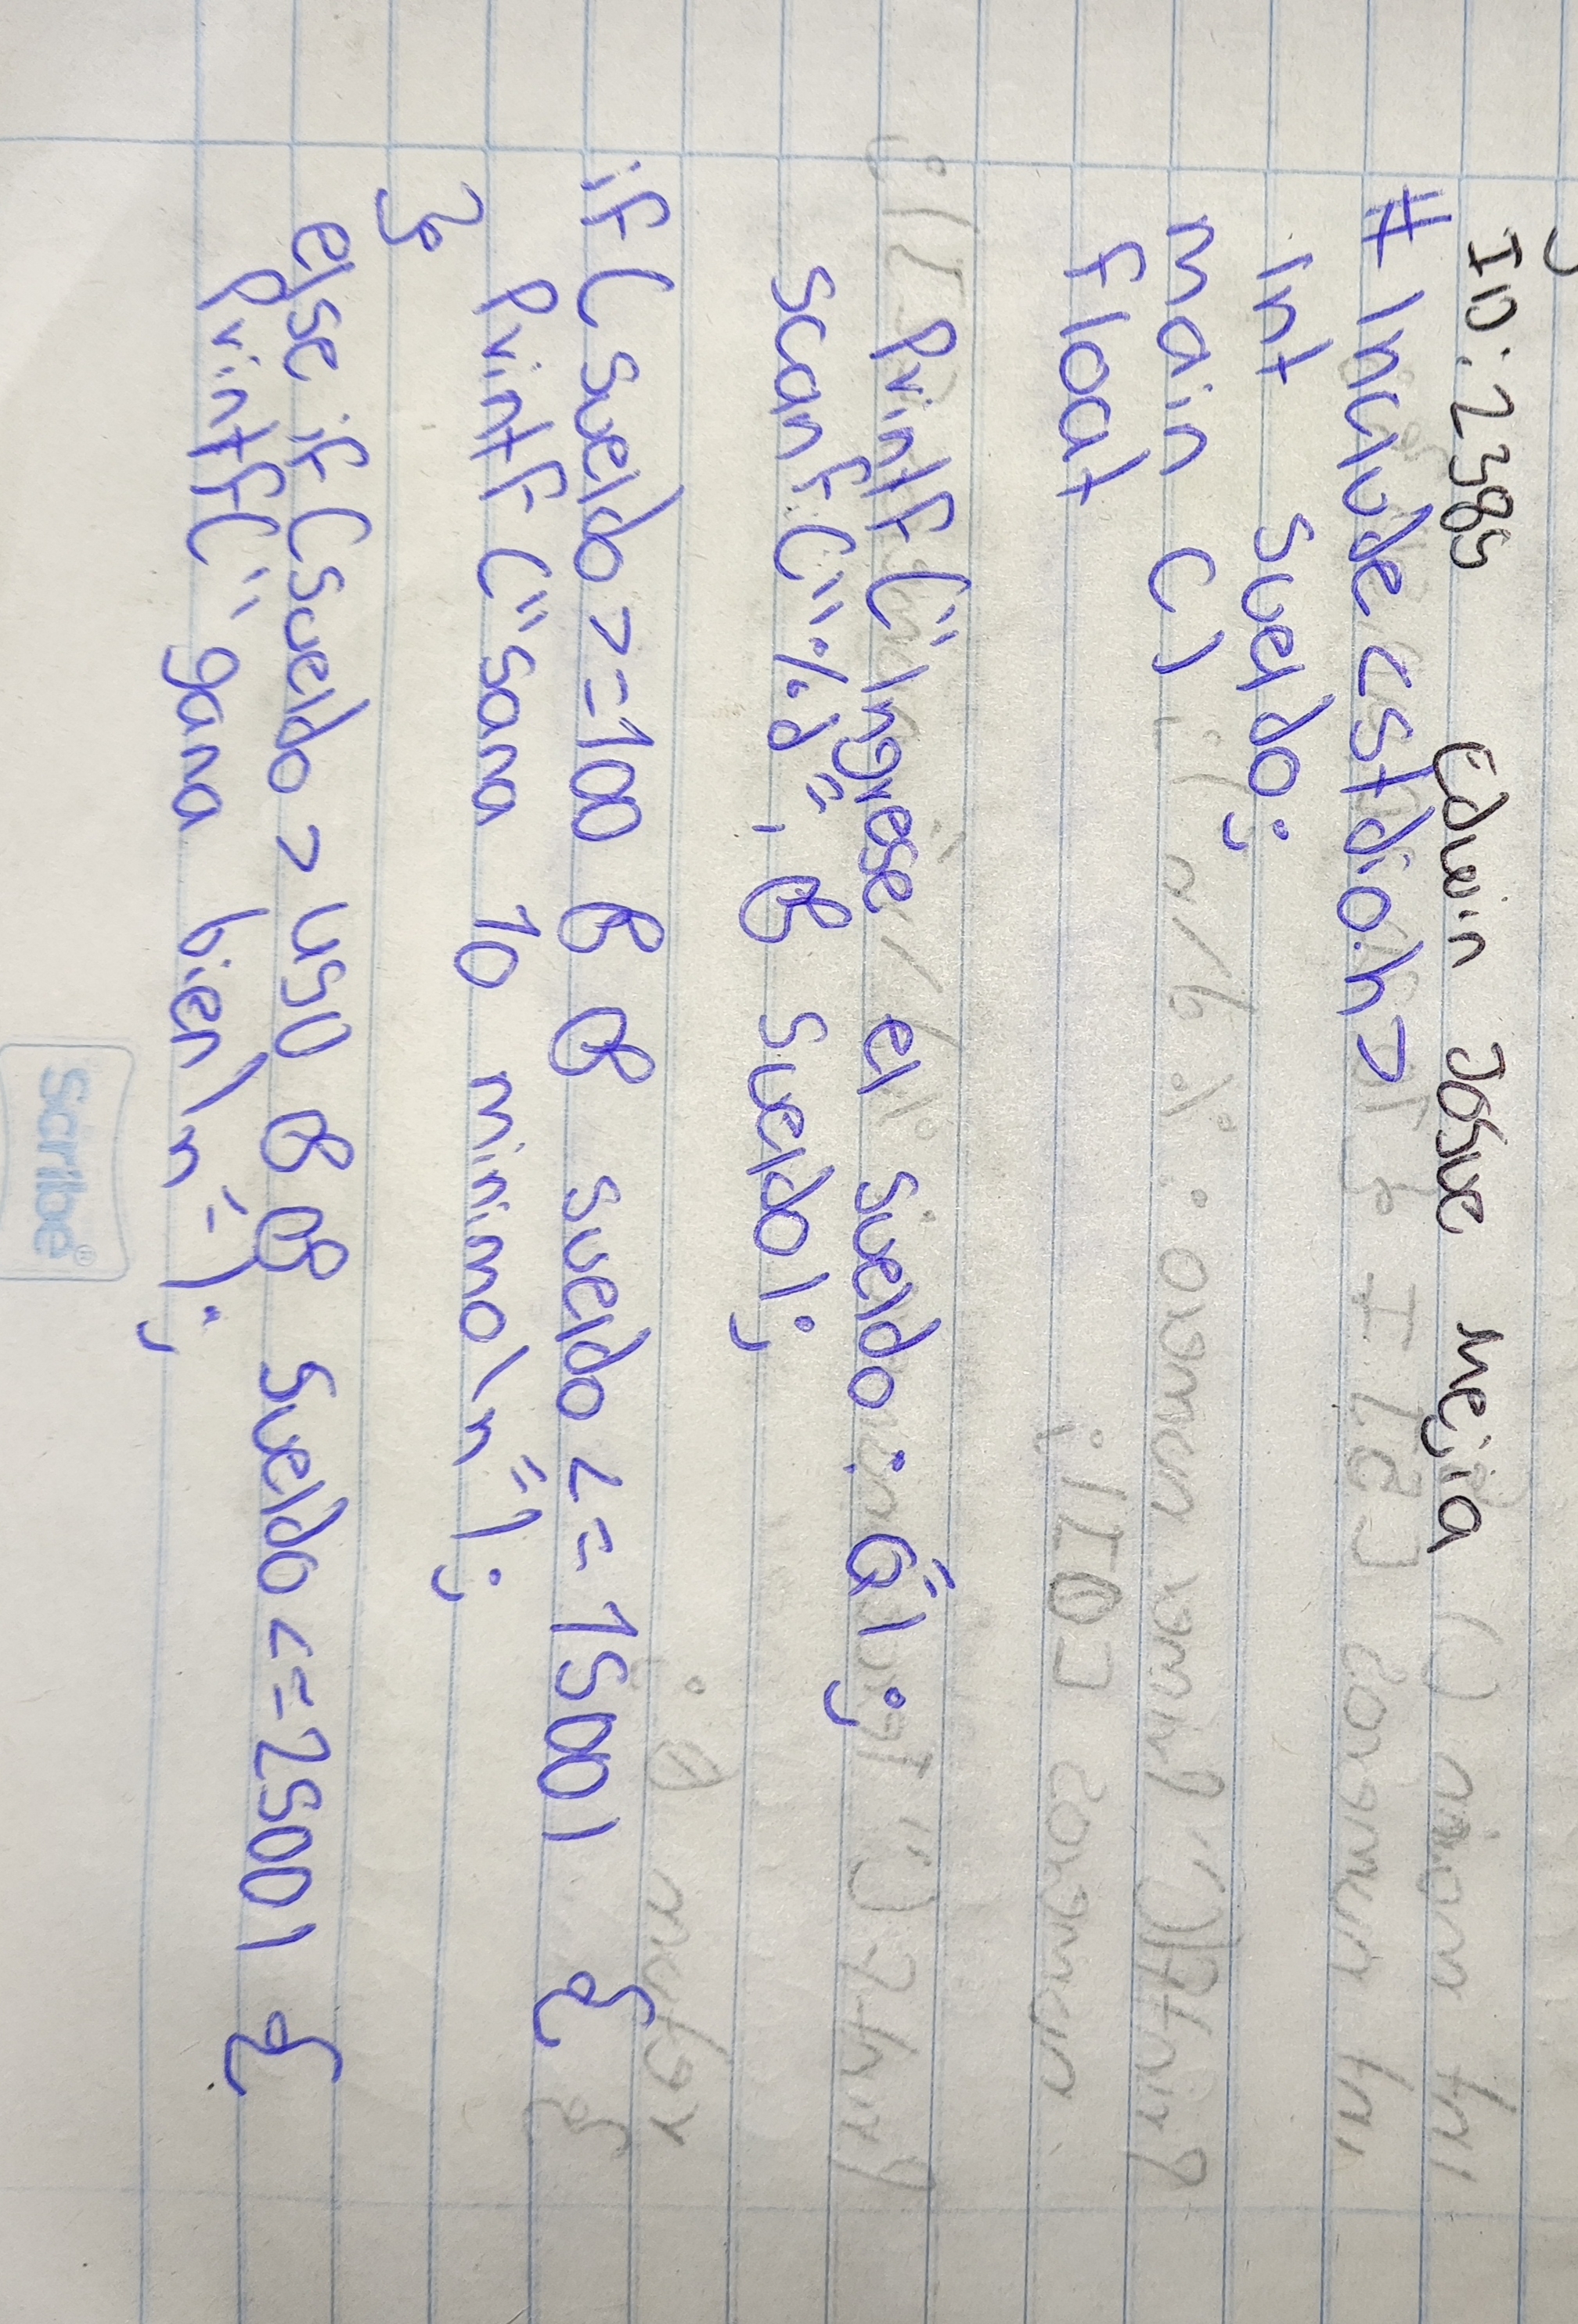 ID: 2385 Edwin Josue Mejia
# Include <stdio.h>
Int sueldo;
main ()
float
printf ("Ingrese el sueldo: Q");
scanf ("%d", & sueldo);
if (sueldo >=100 & & sueldo <= 1500) {
printf ("sana 10 minimo\n");
}
else if (sueldo > 450 & & sueldo <= 2500) {
printf (" gana bien\n");
Scribe®